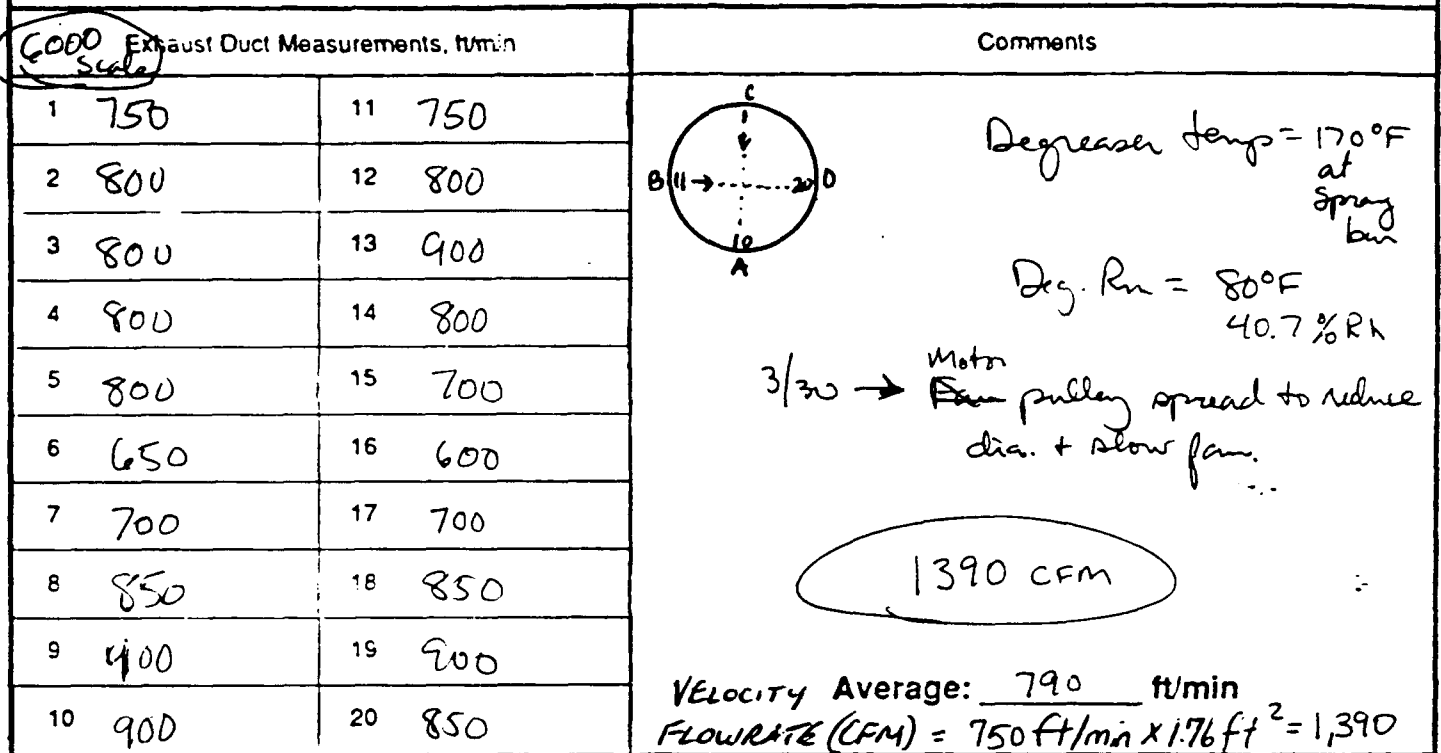 6000
Scale
Exhaust Duct Measurements, ft/min
Comments
1 750 11 750
2 800 12 800
3 800 13 900
4 800 14 800
5 800 15 700
6 650 16 600
7 700 17 700
8 850 18 850
9 900 19 900
10 900 20 850
C
1
B 11 20 D
10
A
Degreaser temp = 170°F
at
spray
bar
Deg. Rm = 80°F
40.7 % Rh
Motor
3/30 → Fan pulley spread to reduce
dia. + slow fan.
1390 CFM
VELOCITY Average: 790 ft/min
FLOWRATE (CFM) = 750 ft/min x 1.76 ft² = 1,390